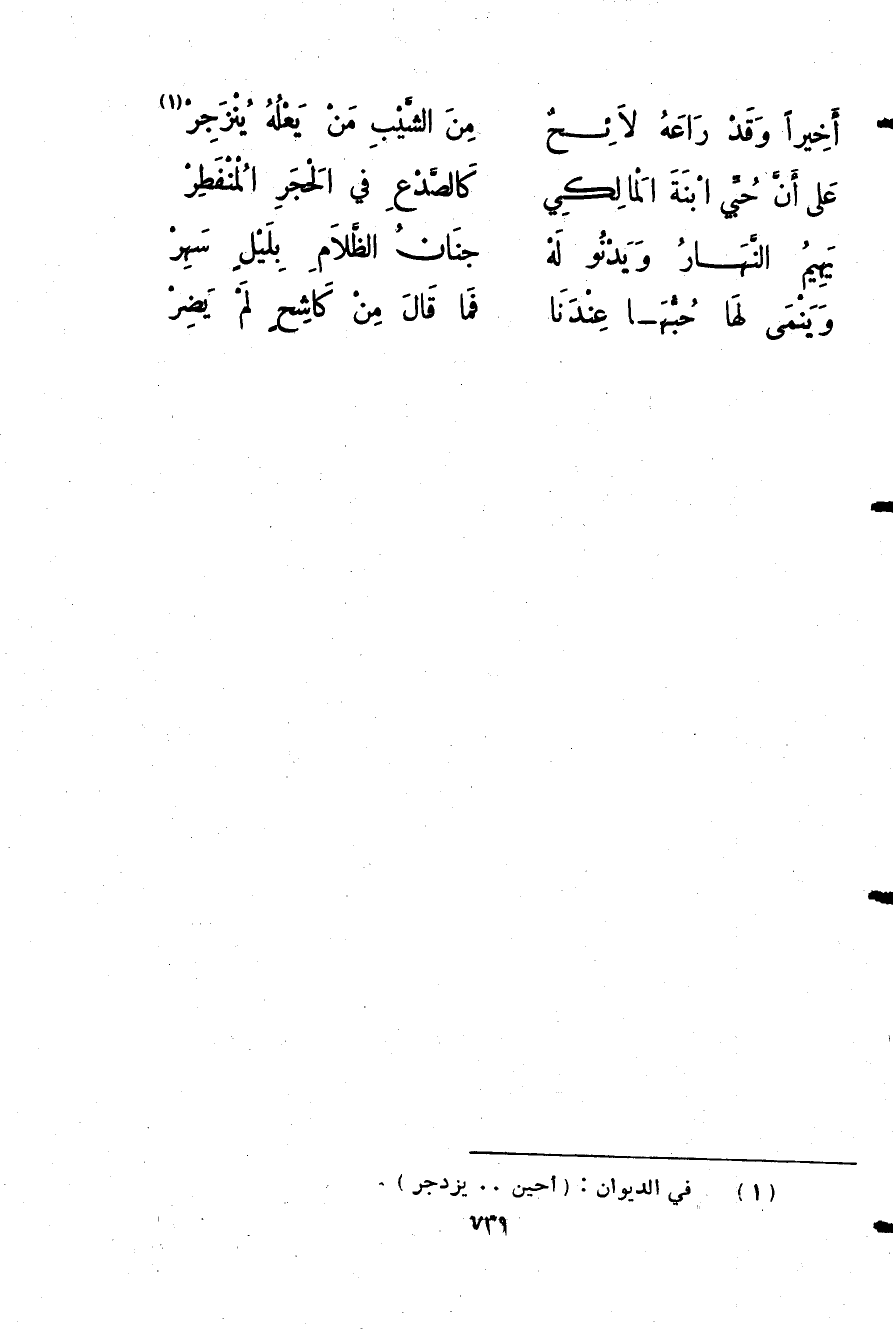 أَخِيراً وَقَدْ رَاعَهُ لاَئِـــحٌ مِنَ الشَّيْبِ مَنْ يَعْلُهُ يُنْزَجِرْ(١)
عَلى أَنَّ حُبِّي ابْنَةَ الْمَالِكِي كَالصَّدْعِ في الْحَجَرِ الْمُنْفَطِرْ
يَهِيمُ النَّهَـــارُ وَيَدْنُو لَهُ جنَانُ الظَّلاَمِ بِلَيْلٍ سَهِرْ
وَيَنْمَى لَهَا حُبُّهَـا عِنْدَنَا فَمَا قَالَ مِنْ كَاشِحٍ لَمْ يَضِرْ
(١) في الديوان : (أحين .. يزدجر) .
٧٣٩